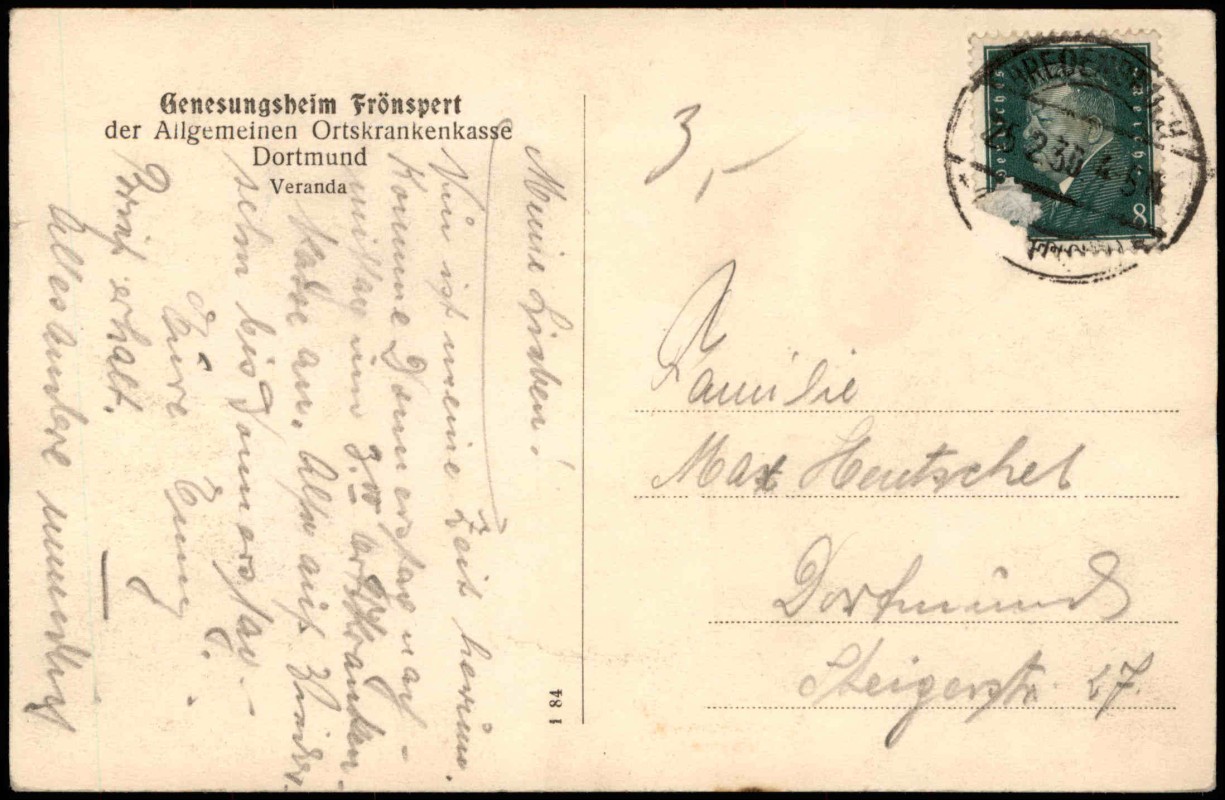 Genesungsheim Frönspert
der Allgemeinen Ortskrankenkasse
Dortmund
Veranda
Meine Lieben!
Nun ist meine Zeit herum.
Komme Donnerstag nach-
mittag um 3.00 Ortskranken-
kasse an. Also auf Wieder-
sehn bis Donnerstag
Eure
Brief erhalt.
Alles andere mündlich
1 84
3,-
Deutsches Reich
8
25.2.30.4-5
Familie
Max Hentschel
Dortmund
Steigerstr. 27.